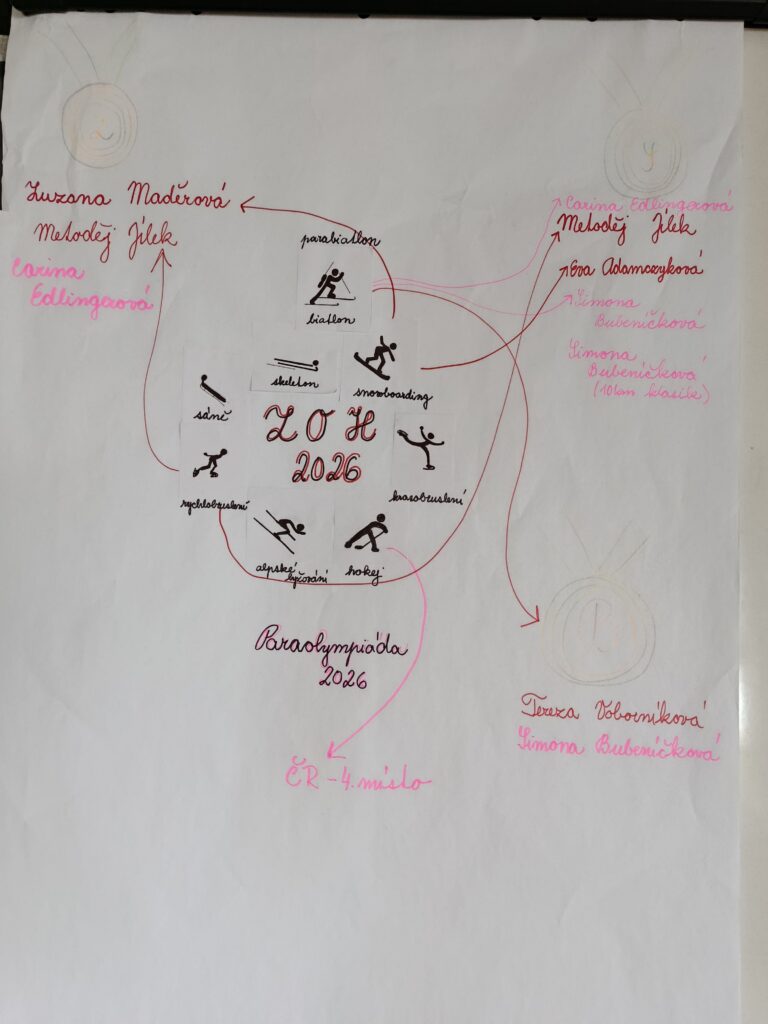 Z
S
Zuzana Maděrová
Metoděj Jílek
Carina
Edlingerová
Carina Edlingerová
Metoděj Jílek
Eva Adamczyková
Simona
Bubeníčková
Simona
Bubeníčková
(10km klasik)
parabiatlon
biatlon
skeleton
snowboarding
sáně
ZOH
2026
rychlobruslení
krasobruslení
alpské
lyžování
hokej
Paraolympiáda
2026
ČR - 4. místo
B
Tereza Voborníková
Simona Bubeníčková